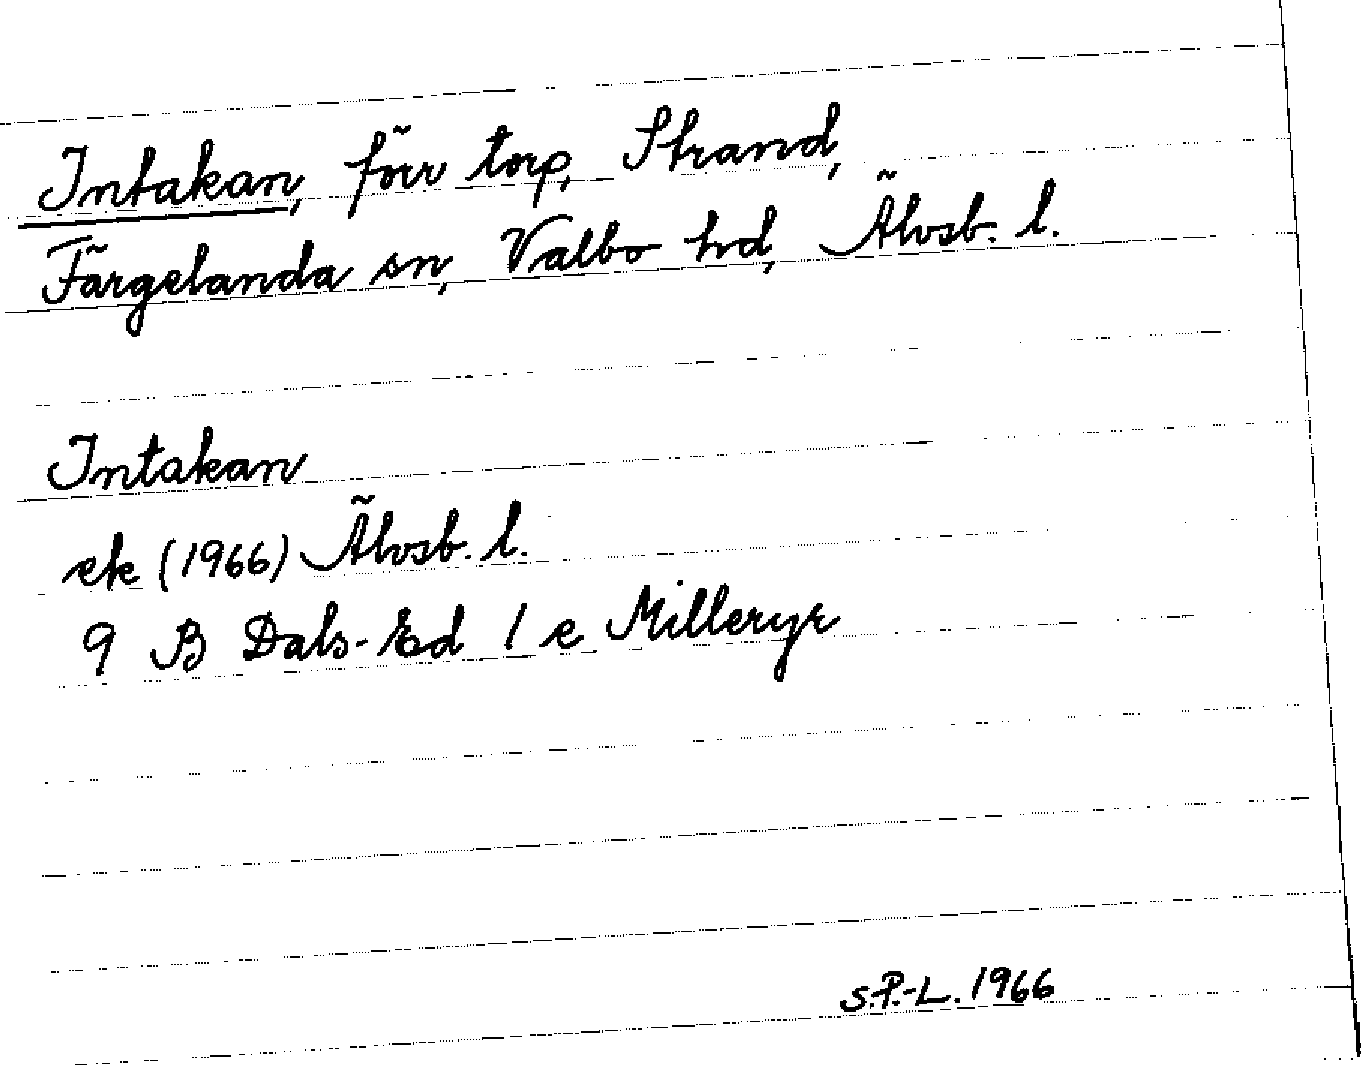 Intakan, förr torp, Strand,
Färgelanda sn, Valbo hd, Älvsb. l.
Intakan
ek (1966) Älvsb. l.
9 B Dals-Ed 1 e Milleryr
S.P.-L. 1966